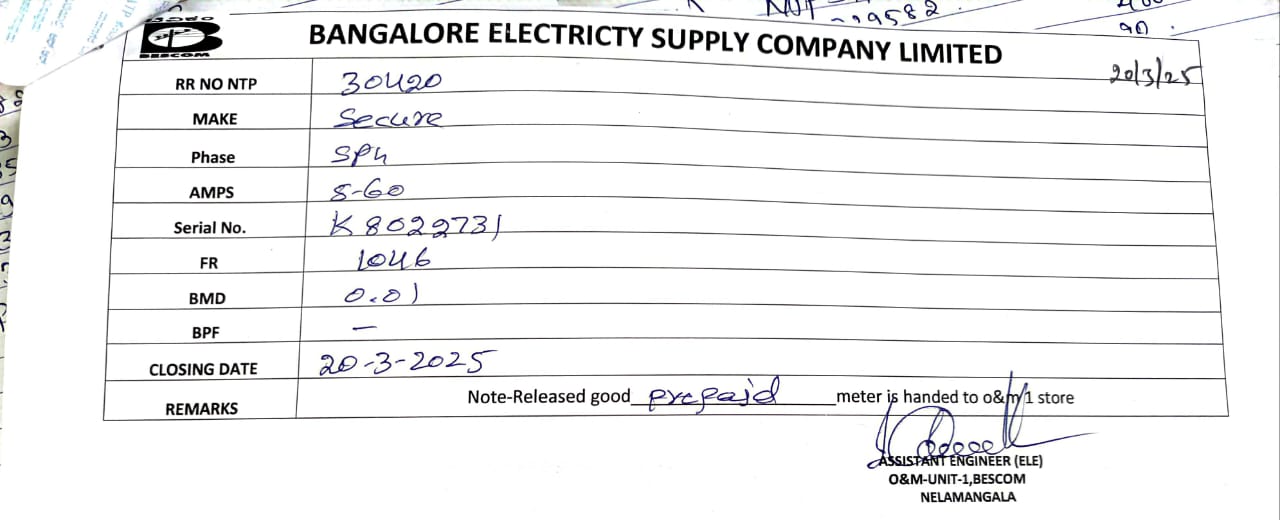 NNT 99582
90
BESCOM
BANGALORE ELECTRICTY SUPPLY COMPANY LIMITED
20/3/25
RR NO NTP 30420
MAKE Secure
Phase SPh
AMPS 5-60
Serial No. K8022731
FR 1046
BMD 0.01
BPF —
CLOSING DATE 20-3-2025
REMARKS Note-Released good prepaid meter is handed to o&m/1 store
ASSISTANT ENGINEER (ELE)
O&M-UNIT-1,BESCOM
NELAMANGALA